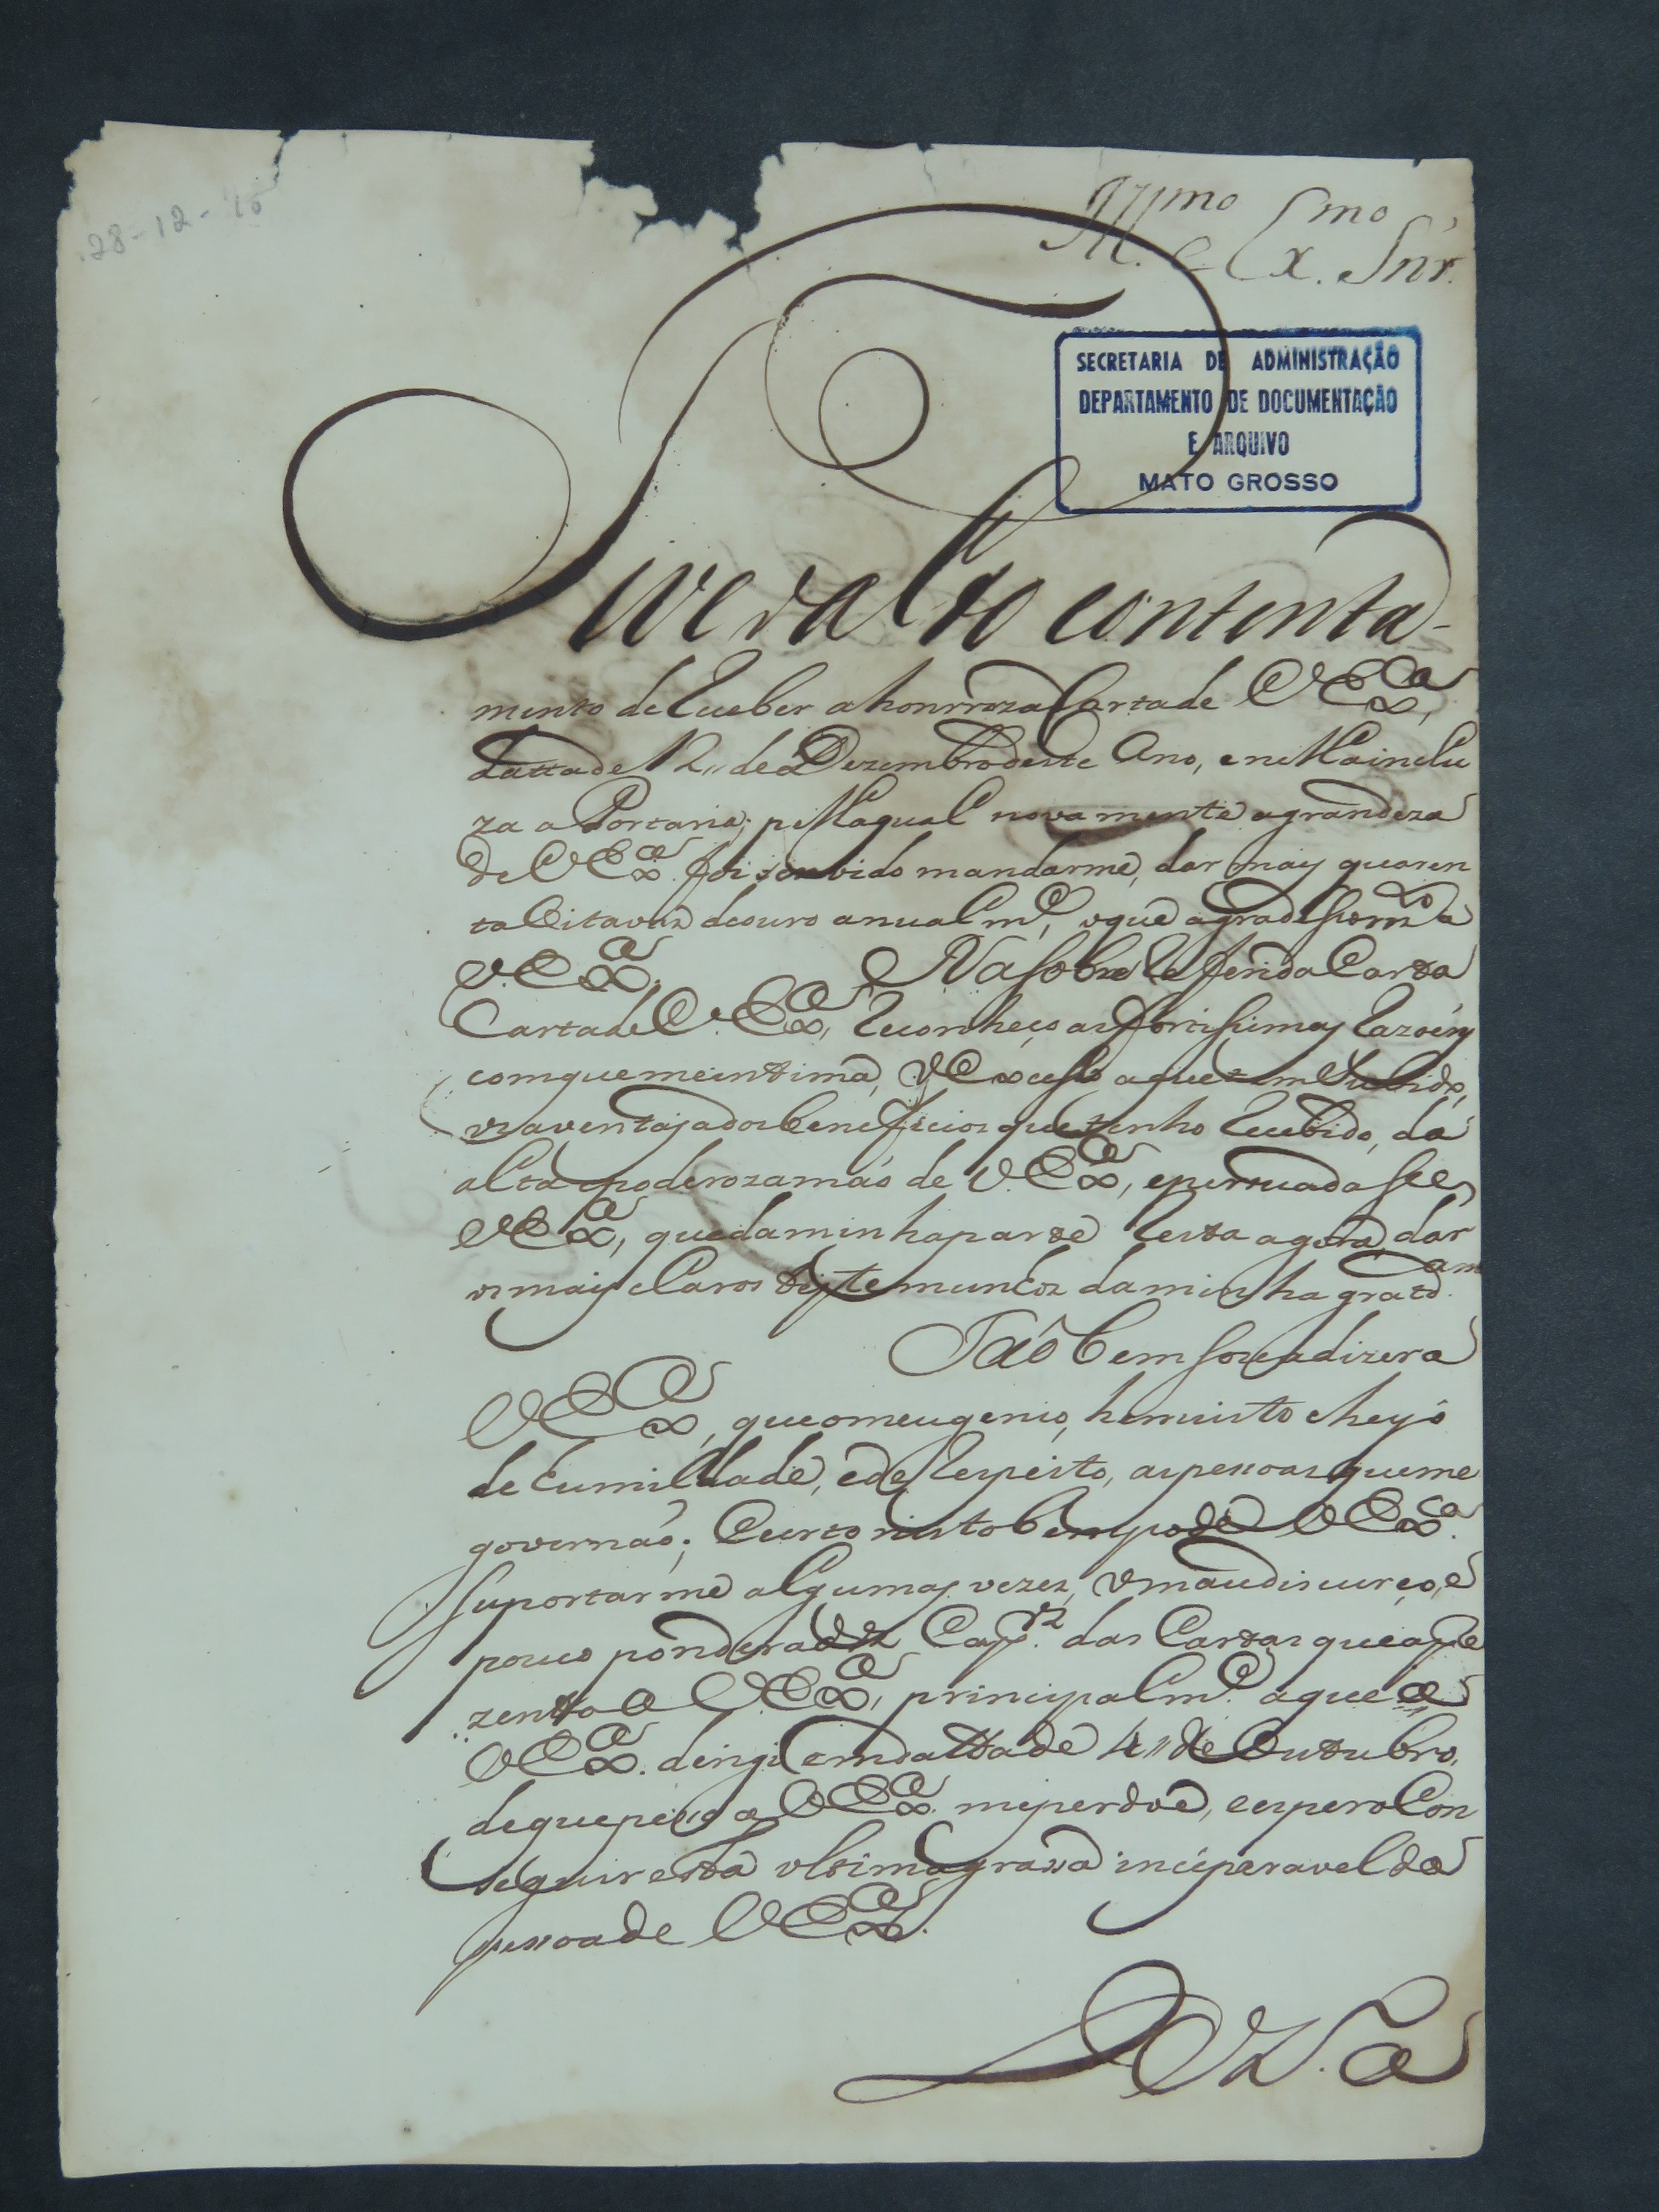 28-12-
Ill.mo e Ex.mo Snr.
SECRETARIA DE ADMINISTRAÇÃO
DEPARTAMENTO DE DOCUMENTAÇÃO
E ARQUIVO
MATO GROSSO
Tive o alto contenta-
mento de receber a honrroza Carta de V Ex.ª,
datta de 12,, de Dezembro deste Ano, e nella inclu
za a Portaria; pella qual novamente a grandeza
de V Ex.ª foi servido mandarme, dar mays quaren
ta Oitavas de ouro anualm.e, o que agradesso a
V. Ex.ª. Na sobre Referida Carta
Carta de V. Ex.ª, Reconheço as fortissimas Razoins
com que me intima, o excesso a que tem subido,
os aventajados beneficios que tenho Recebido, da
alta e poderoza maó de V. Ex.ª, e persuadasse
V Ex.ª, que da minha parte Resta agora, dar
os mays claros testemunhos da minha gratd.am
Taõ bem se offrece a dizer a
V Ex.ª, que o meu genio, he muisto cheyo
de humilldade, e de Respeito, as pessoas que me
governaó; Certo nisto bem pode V Ex.ª.
suportarme algumas vezes, o mau discurço, e
pouco ponderados Cap.os das Cartas que apre
zento a V. Ex.ª, principalm.e a que a
V Ex.ª. dirigi em datta de 4,, de Outubro,
de que pesso a V Ex.ª. me perdoe, e espero Con
seguir esta ultima grassa inceparavel da
pessoa de V Ex.ª.